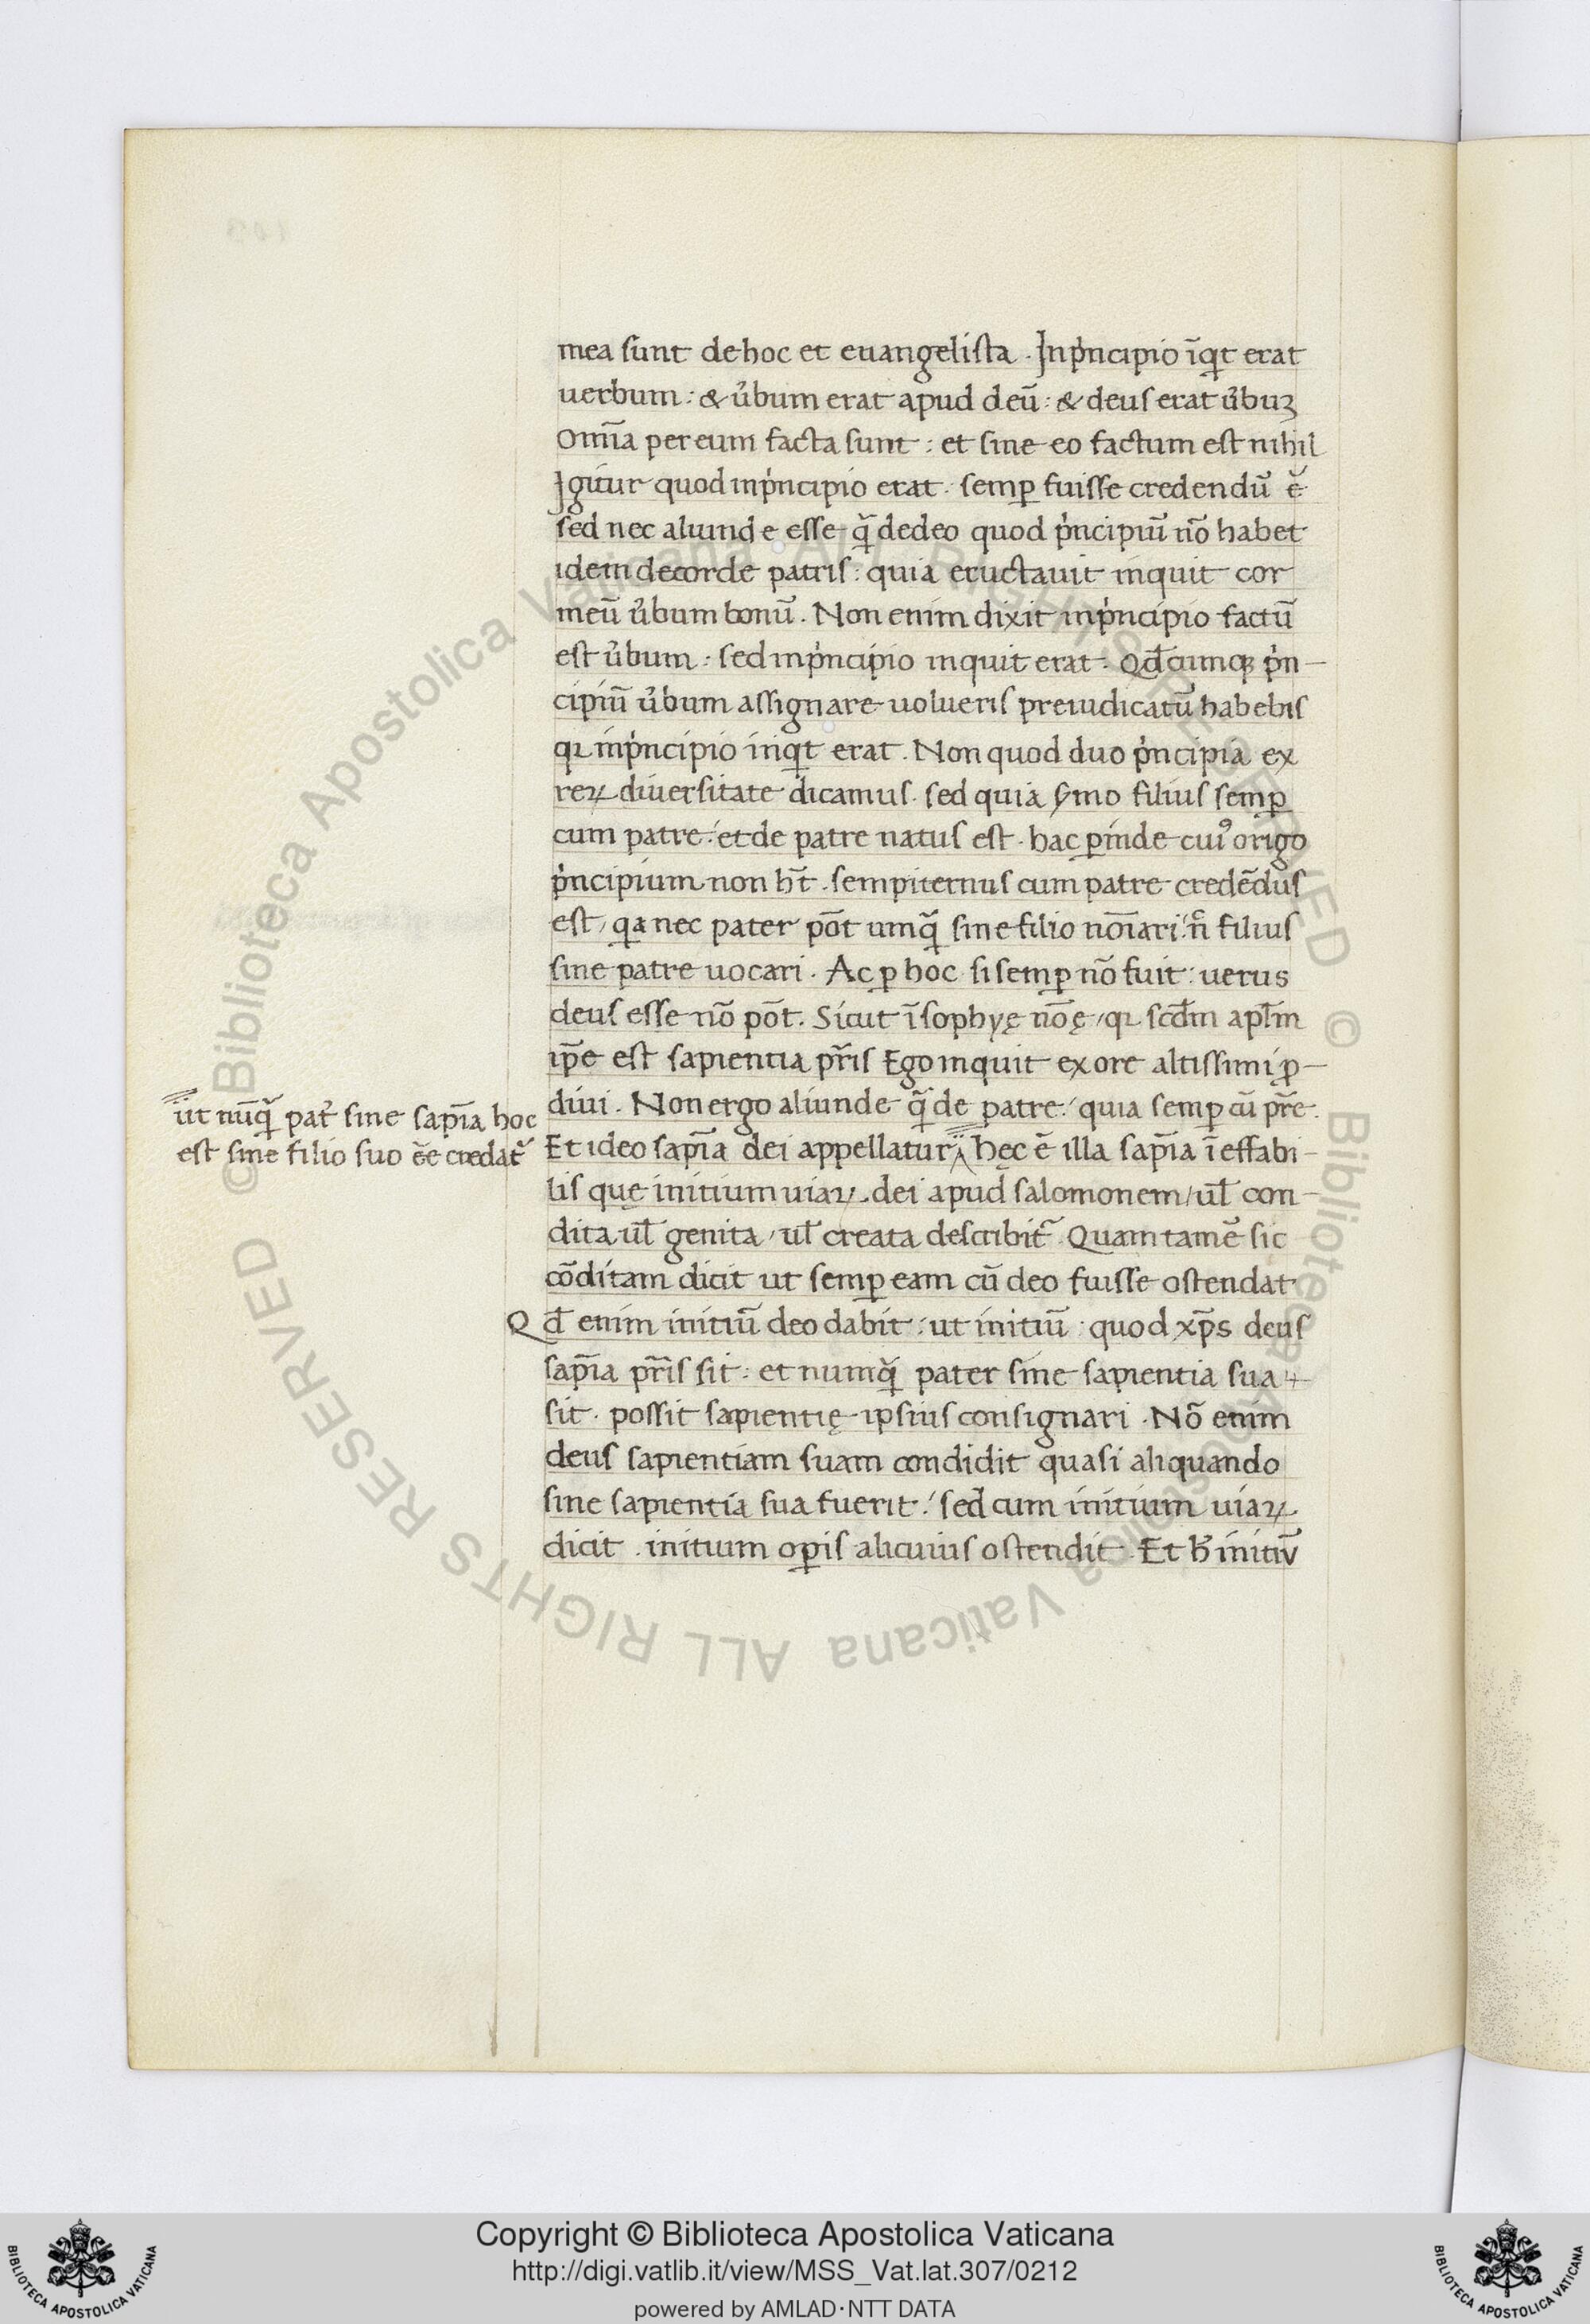 mea sunt de hoc et euangelista. In p̍ncipio īq̍t erat
uerbum: & u̓bum erat apud deū: & deus erat u̓buꝫ
Om̄ia per eum facta sunt: et sine eo factum est nihil
Igitur quod in p̍ncipio erat. semꝑ fuisse credendū ē
sed nec aliunde esse q̄̃ de deo quod p̍ncipiū nō habet
idem de corde patris: quia eructauit inquit cor
meū u̓bum bonū. Non enim dixit in p̍ncipio factū
est u̓bum: sed in p̍ncipio inquit erat. Qđcumqꝫ p̍n-
cipiū u̓bum assignare uolueris preiudicatū habebis
qꝛ in p̍ncipio inq̍t erat. Non quod duo p̍ncipia ex
reꝝ diuersitate dicamus. sed quia ẜmo filius semꝑ
cum patre: et de patre natus est. hac ꝑinde cuiꝰ origo
p̍ncipium non ht̄. sempiternus cum patre credēdus
est, qa nec pater pōt umq̃ sine filio noīari: n̄ filius
sine patre uocari. Ac ꝑ hoc si semꝑ nō fuit: uerus
deus esse nō pōt. Sicut ī sophyę nōę, qꝛ scđm apłm
ip̄e est sapientia pr̄is Ego inquit ex ore altissimi ꝓ-
diui. Non ergo aliunde q̃ de patre: quia semꝑ cū pr̄e.
ut nūq̃ pat̓ sine sap̄ia hoc
est sine filio suo ēe credat᷑
Et ideo sap̄ia dei appellatur hęc ē illa sap̄ia īeffabi-
lis quę initium uiaꝝ dei apud salomonem, ul̄ con-
dita ul̄ genita, ul̄ creata describit᷑. Quam tamē sic
cōditam dicit ut semꝑ eam cū deo fuisse ostendat
Qđ enim initiū deo dabit: ut initiū: quod xp̄s deus
sap̄ia pr̄is sit: et numq̃ pater sine sapientia sua
sit. possit sapientię ipsius consignari. Nō enim
deus sapientiam suam condidit quasi aliquando
sine sapientia sua fuerit: sed cum initium uiaꝝ
dicit. initium oꝑis alicuius ostendit. Et h̓ initiū
© Biblioteca Apostolica Vaticana ALL RIGHTS RESERVED © Biblioteca Apostolica Vaticana ALL RIGHTS RESERVED
Copyright © Biblioteca Apostolica Vaticana
http://digi.vatlib.it/view/MSS_Vat.lat.307/0212
powered by AMLAD·NTT DATA
BIBLIOTECA APOSTOLICA VATICANA
BIBLIOTECA APOSTOLICA VATICANA